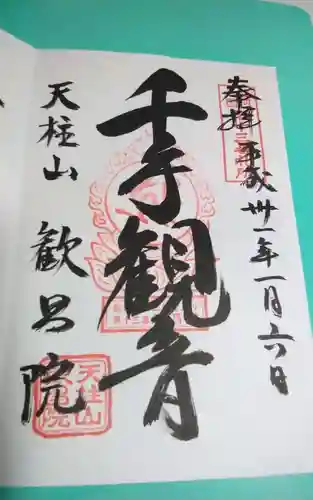 奉拝
平成卅一年一月六日
千手観音
天柱山
歓昌院
天柱山